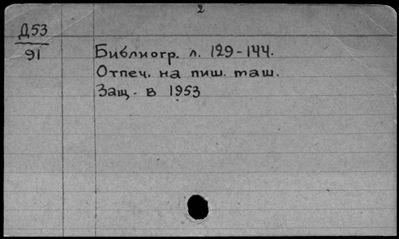 2
Д53
91
Библиогр. л. 129-144.
Отпеч. на пиш. таш.
Защ. в 1953